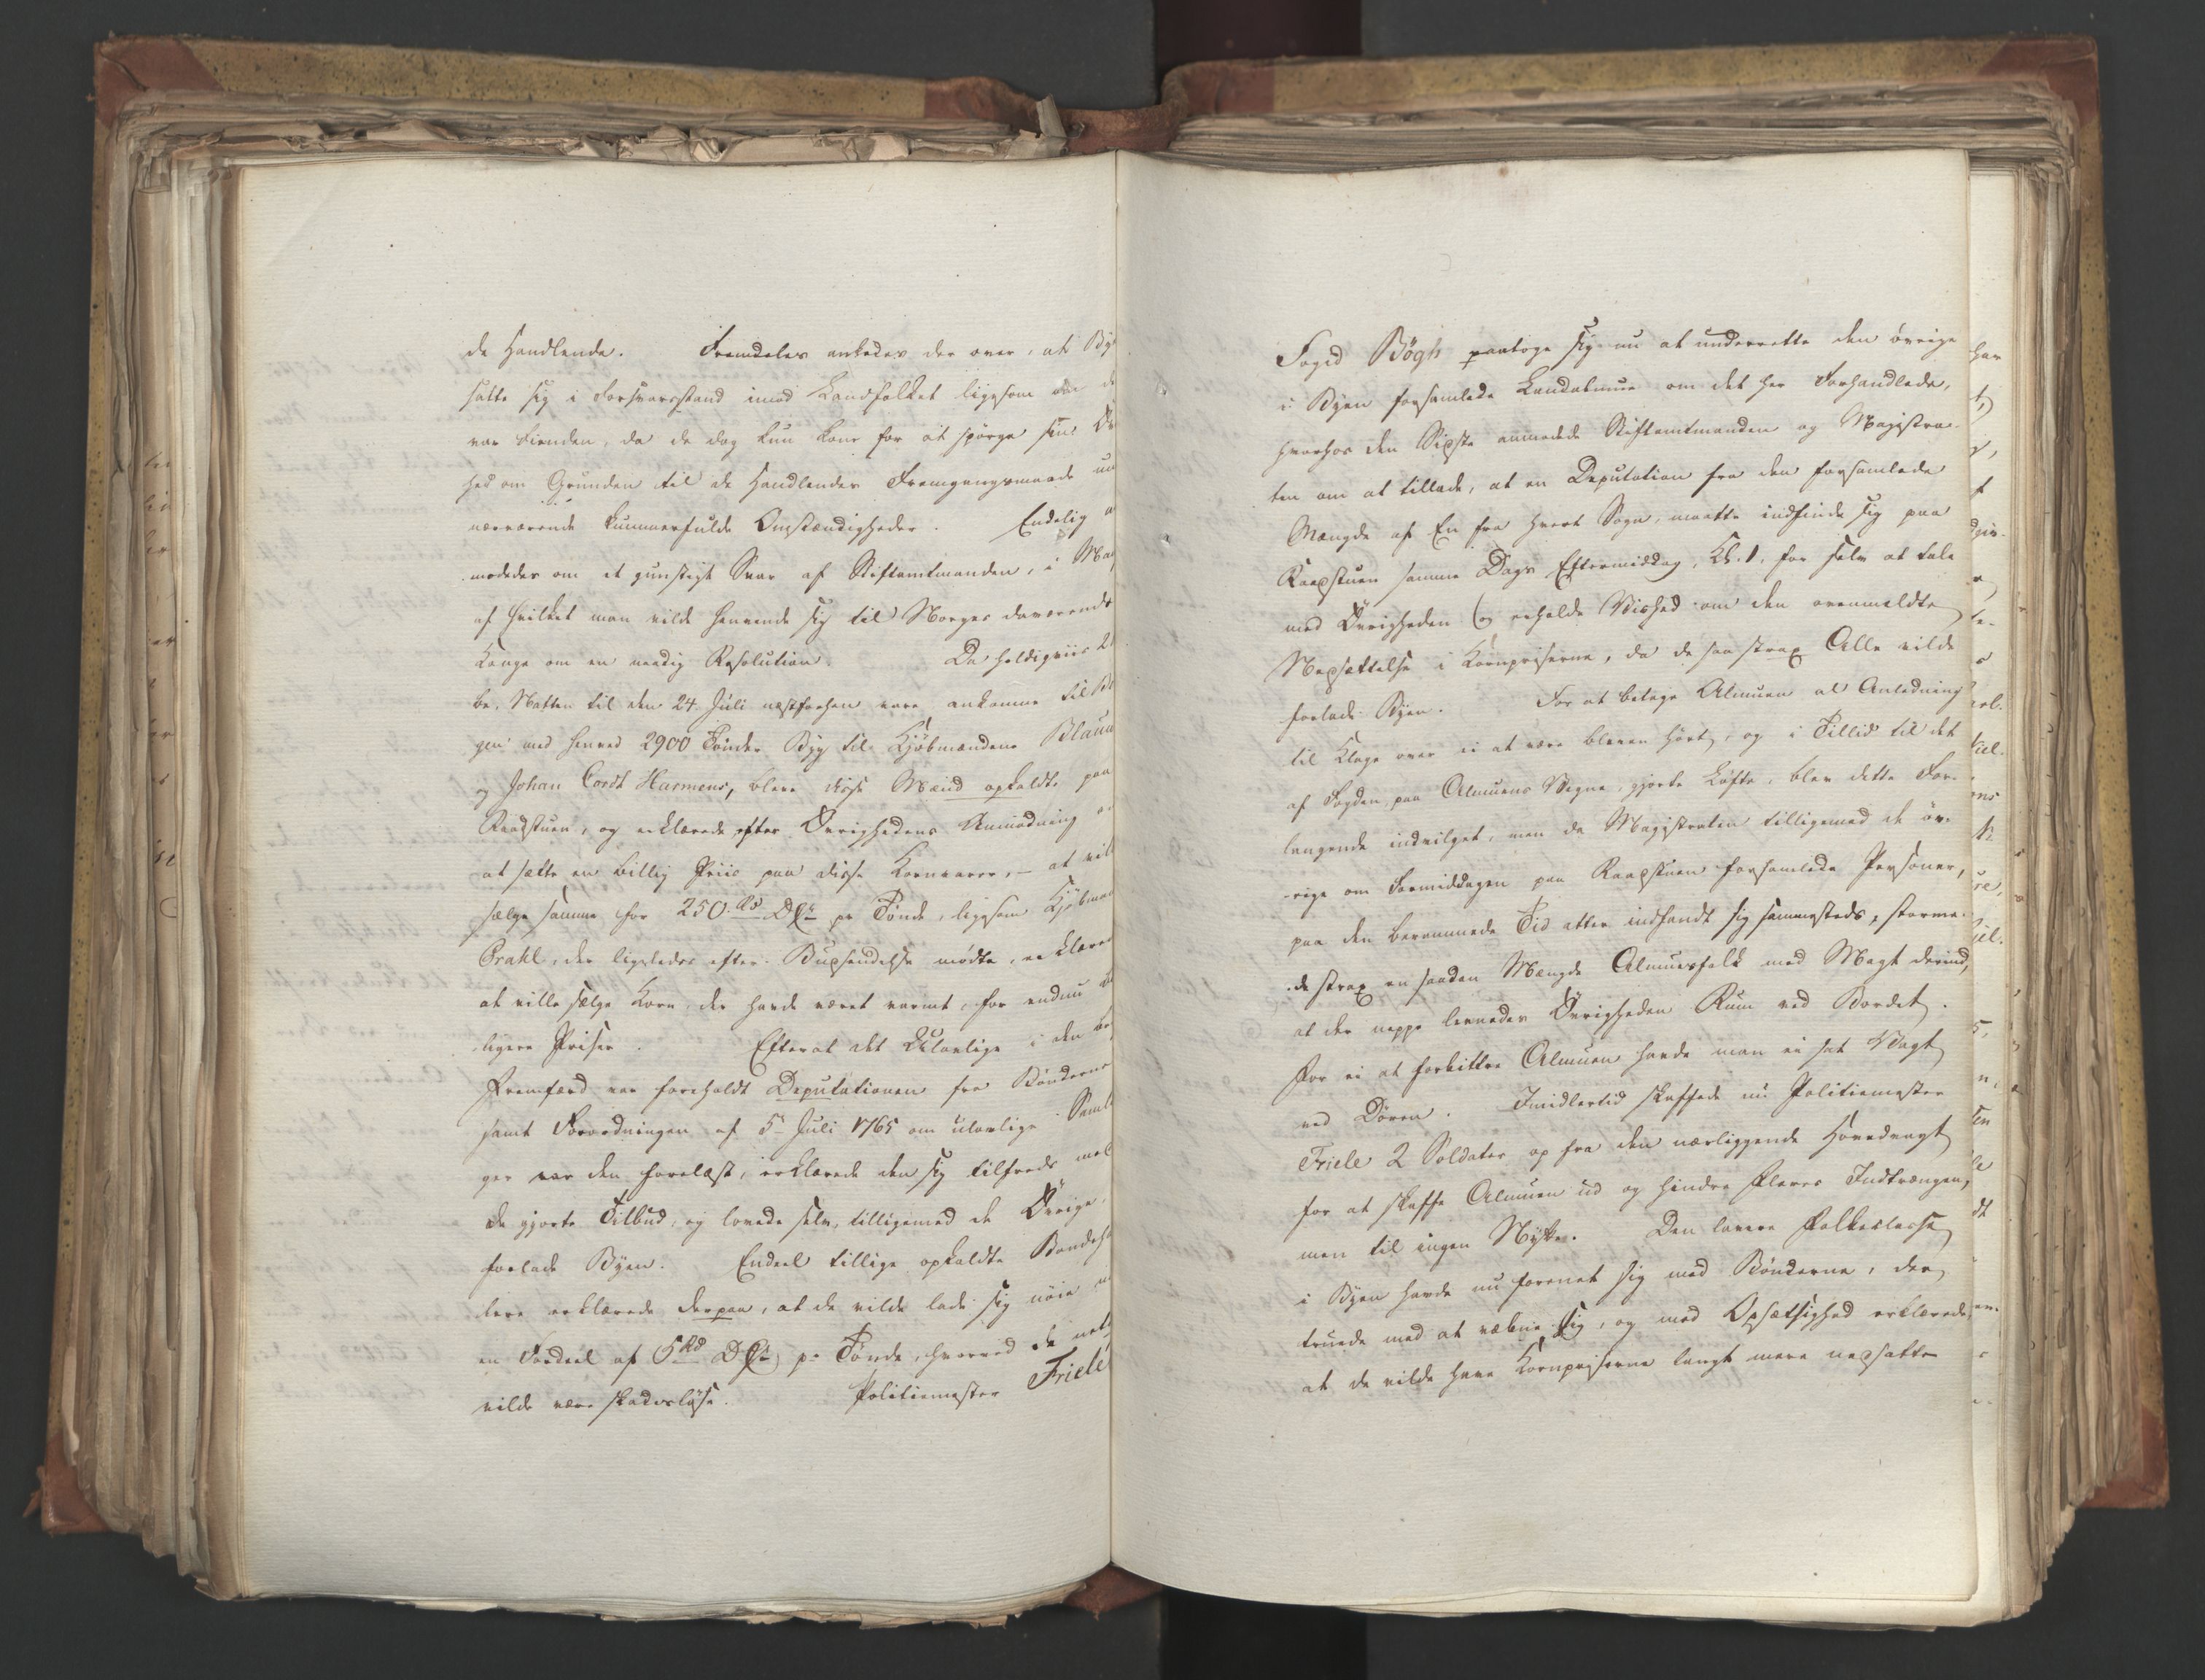 de Handlende. Fremdeles ankedes der over, at By
satte sig i Forsvarsstand imod Landfolket ligesom om de
var Fienden, da de dog kun kom for at spørge sin Øv
hed om Grunden til de Handlendes Fremgangsmaade un
nærværende kummerfulde Omstændigheder. Endelig a
modedes om et gunstigt Svar af Stiftamtmanden, i Ma
af hvilket man vilde henvende sig til Norges daværende
Konge om en naadig Resolution. Da heldigviis 2
be. Natten til den 24. Juli næstforhen vare ankomne til Be
gen med henved 2900 Tønder Byg til Kjøbmændene Blauu
og Johan Cordt Harmens, bleve disse Mænd opkaldte paa
Raadstuen, og erklærede efter Øvrighedens Anmodning o
at sætte en billig Priis paa disse Kornvarer, – at vil
sælge samme for 250 Rd DC pr Tønde, ligesom Kjøbmand
Prahl, der ligeledes efter Budsendelse mødte, erklære
at ville sælge Korn, der havde været varmt, for endnu
ligere Priser. Efterat det Ulovlige i den be
Fremfærd var foreholdt Deputationen fra Bønderne
samt Forordningen af 5 Juli 1765 om ulovlige Samli
ger var den forelæst, erklærede den sig tilfreds med
de gjorte Tilbud, og lovede selv, tilligemed de Øvrige,
forlade Byen. Endeel tillige opkaldte Bondeha
lere erklærede derpaa, at de vilde lade sig nøie m
en Fordeel af 5 Rd DC pr Tønde, hvorved de net
vilde være skadesløse. Politiemester Friele
Foged Bøgh paatoge sig nu at underrette den øvrige
i Byen forsamlede Landalmue om det her Forhandlede,
hvorhos den Sidste anmodede Stiftamtmanden og Magistra-
ten om at tillade, at en Deputation fra den forsamlede
Mængde af En fra hvert Sogn, maatte indfinde sig paa
Raadstuen samme Dags Eftermiddag, Kl. 1. for selv at tale
med Øvrigheden og erholde Vished om den ovenmeldte
Nedsættelse i Kornpriserne, da de saa strax Alle vilde
forlade Byen. For at betage Almuen al Anledning
til Klage over ei at være bleven hørt, og i Tillid til det
af Fogden, paa Almuens Vegne, gjorte Løfte, blev dette For-
langende indvilget, men da Magistraten tilligemed de øv-
rige om Formiddagen paa Raadstuen forsamlede Personer,
paa den berammede Tid atter indfandt sig sammesteds, storme-
de strax en saadan Mængde Almuesfolk med Magt derind,
at der neppe levnedes Øvrigheden Rum ved Bordet.
For ei at forbittre Almuen havde man ei sat Vagt
ved Døren. Imidlertid skaffede nu Politiemester
Friele 2 Soldater op fra den nærliggende Hovedvagt
for at skaffe Almuen ud og hindre Fleres Indtrængen,
men til ingen Nytte. Den lavere Folkeclasse
i Byen havde nu forenet sig med Bønderne, der
truede med at væbne sig, og med Opsætsighed erklærede,
at de vilde have Kornpriserne langt mere nedsatte